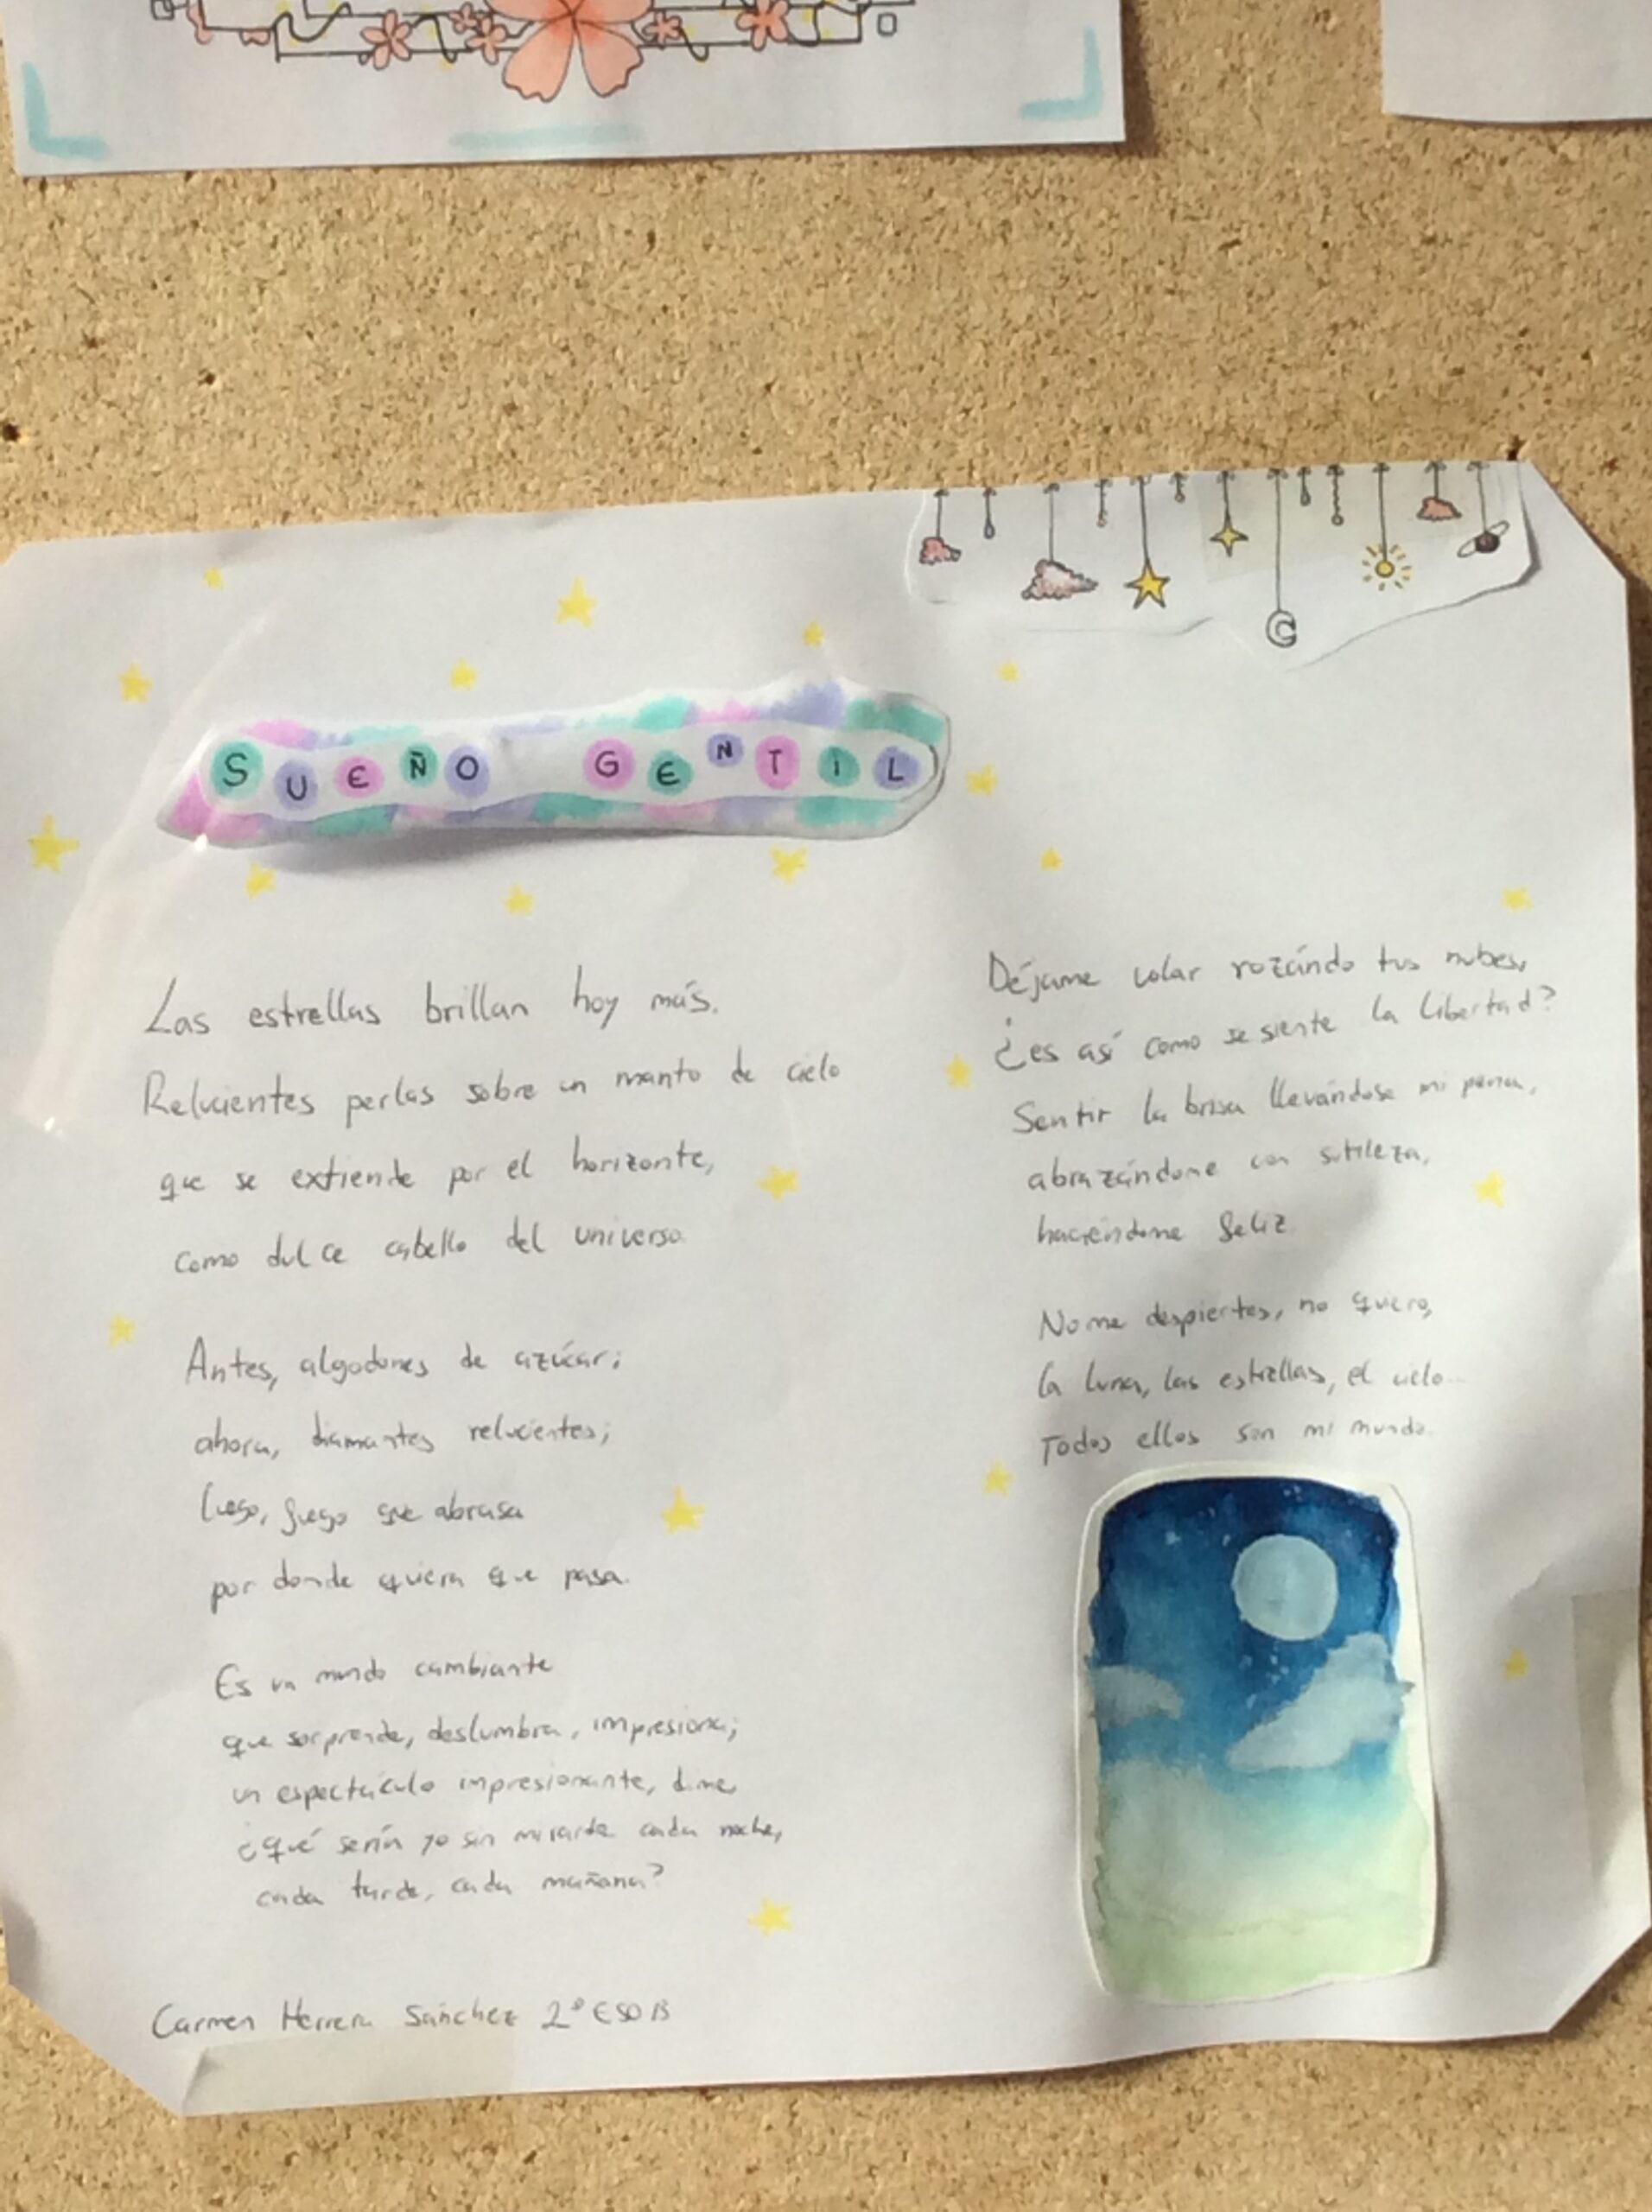 SUEÑO GENTIL
Las estrellas brillan hoy más.
Relucientes perlas sobre un manto de cielo
que se extiende por el horizonte,
como dulce cabello del universo.
Antes, algodones de azúcar;
ahora, diamantes relucientes;
luego, fuego que abrasa
por donde quiera que pasa.
Es un mundo cambiante
que sorprende, deslumbra, impresiona;
un espectáculo impresionante, dime,
¿qué sería yo sin mirarte cada noche,
cada tarde, cada mañana?
Déjame volar rozándo tus nubes,
¿es así como se siente la libertad?
Sentir la brisa llevándose mi pena,
abrazándome con sutileza,
haciéndome feliz.
No me despiertes, no quiero,
la luna, las estrellas, el cielo...
Todos ellos son mi mundo.
Carmen Herrera Sánchez 2º ESO B